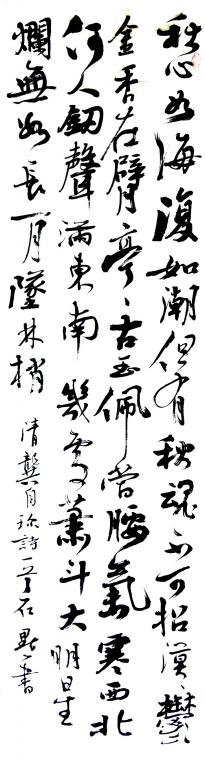 秋心如海復如潮但有秋魂不可招漠漠鬱
金香在臂亭亭古玉佩當腰氣寒西北
何人劍聲滿東南幾處簫斗大明星
爛無數長月墜林梢清龔自珍詩一首石點書